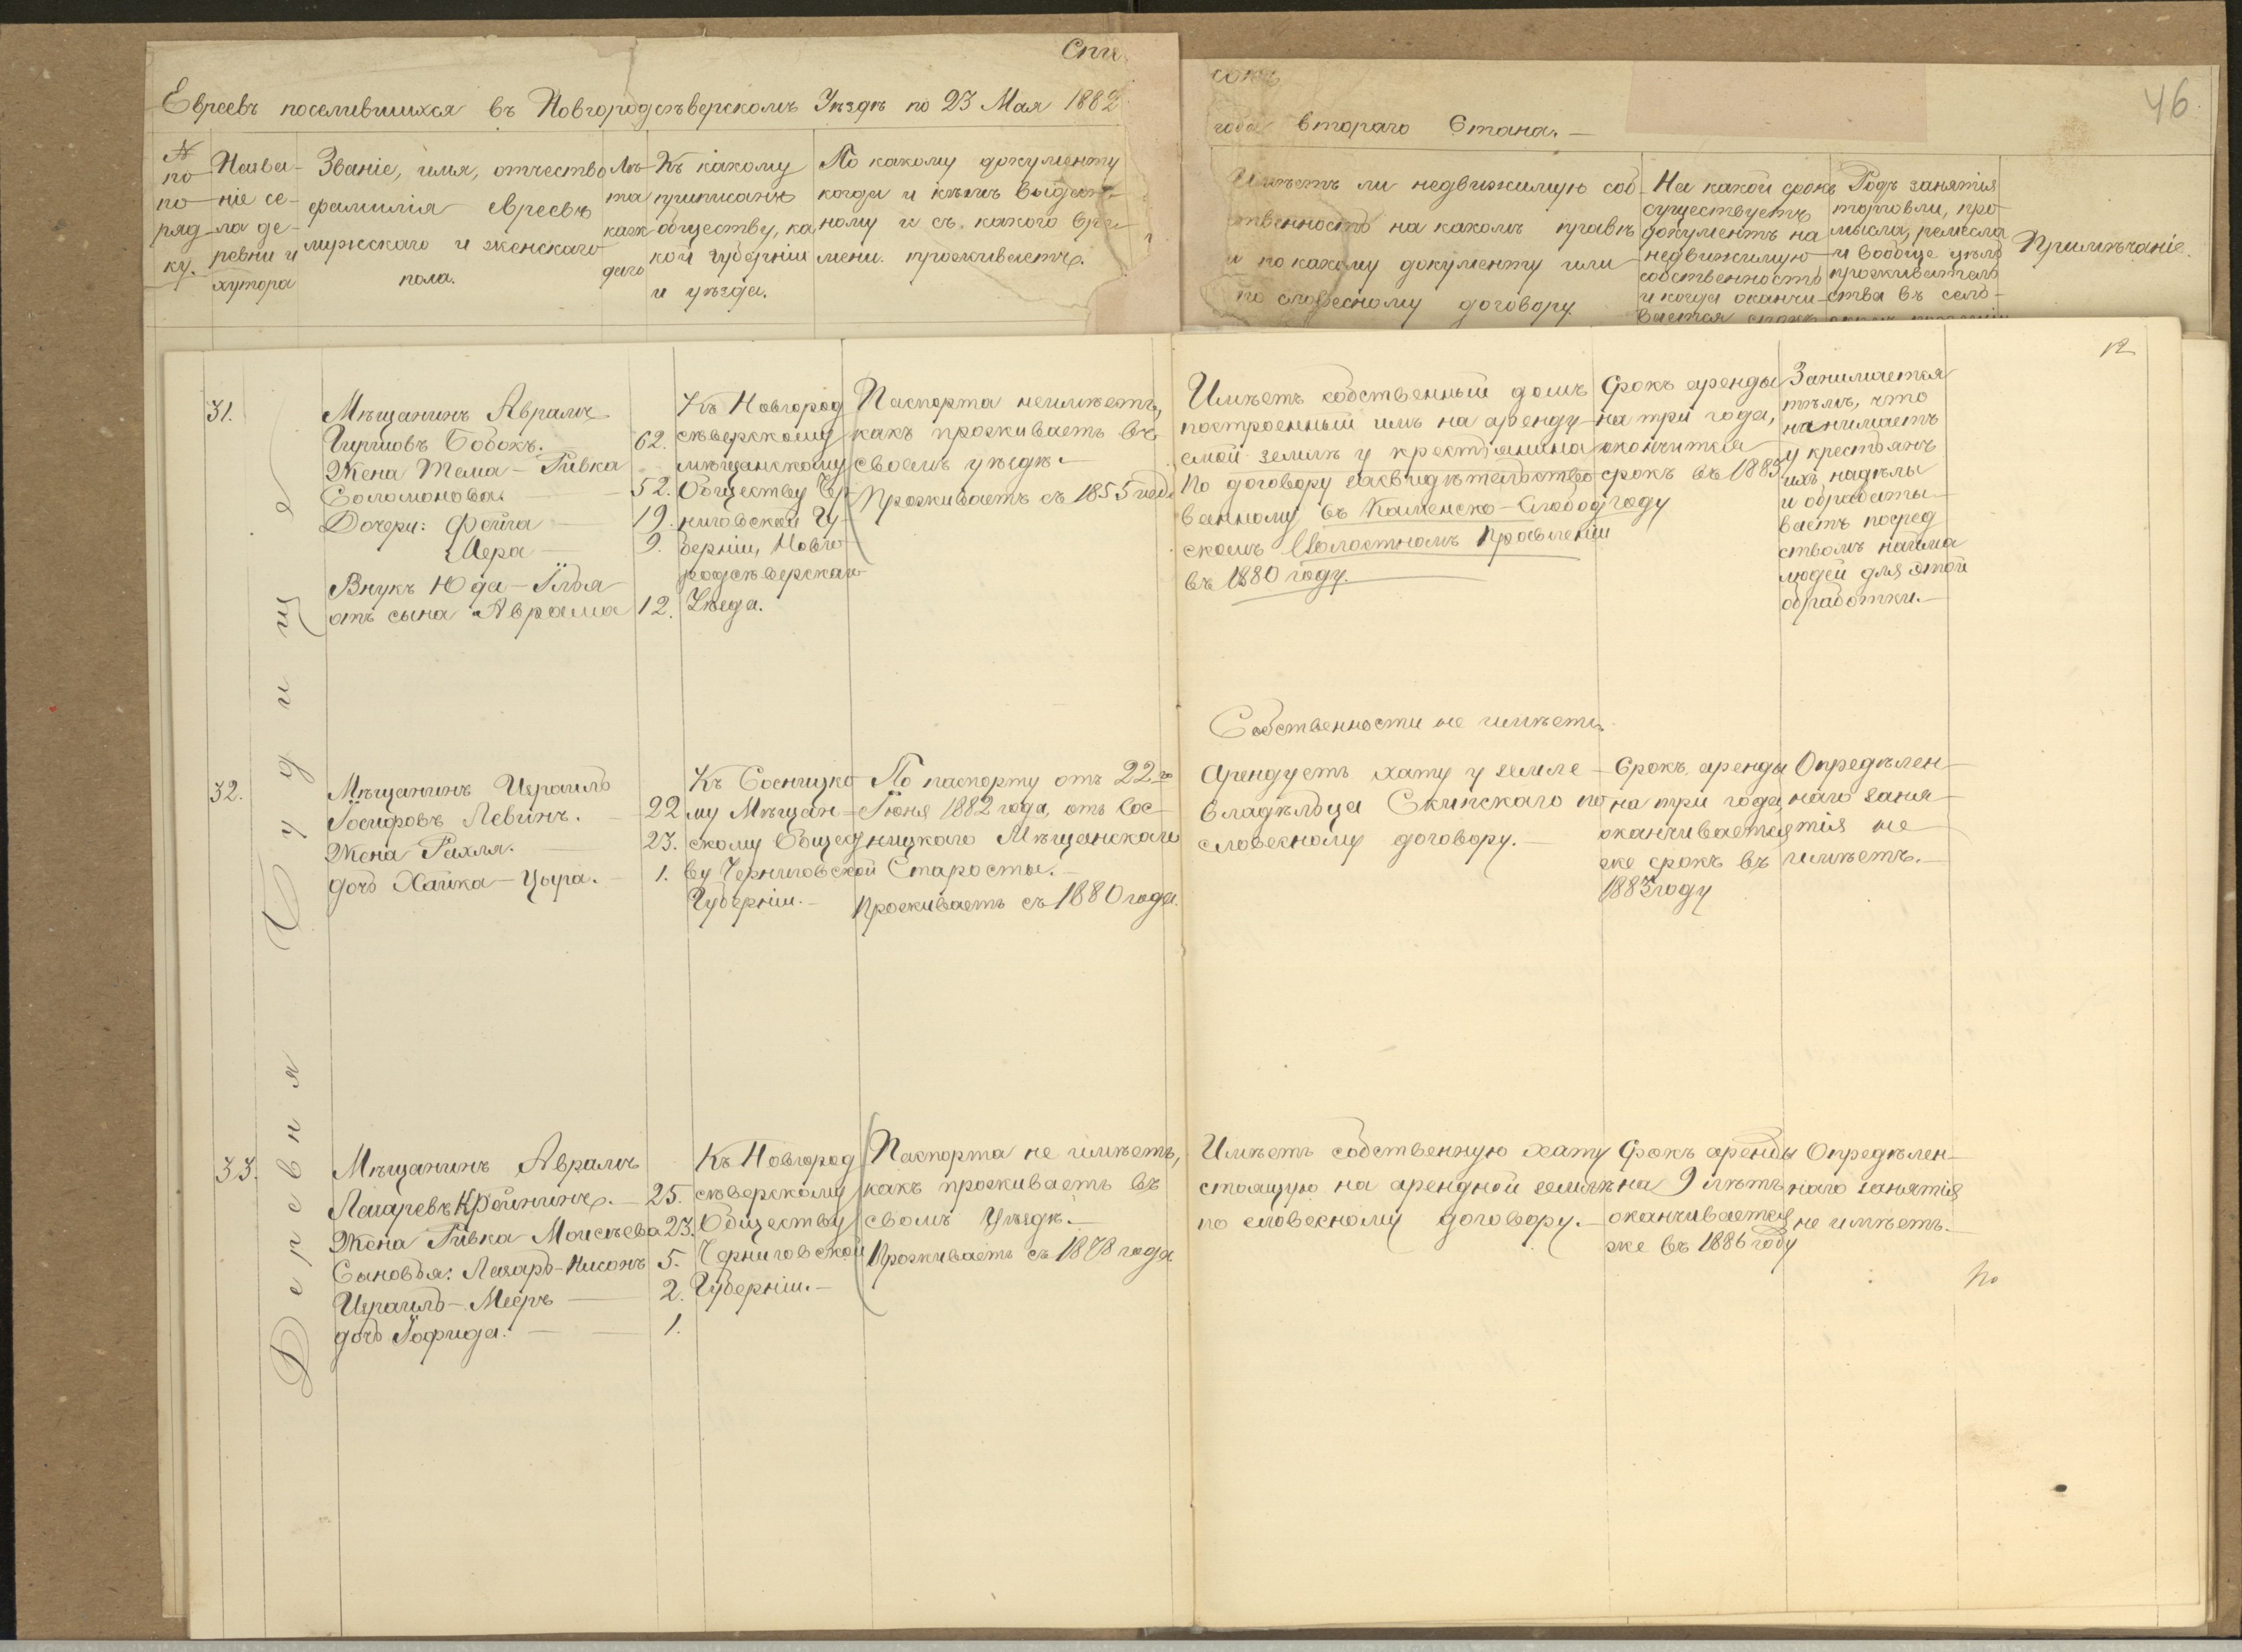 Спи
сокъ
46
Евреевъ поселившихся въ Новгородсѣверскомъ Уѣздѣ по 23 Мая 1882
года втораго Стана.—
№
по
по-
ряд-
ку.
Назва-
ніе се-
ла де-
ревни и
хутора
Званіе, имя, отчество
фамилія евреевъ
мужскаго и женскаго
пола.
Лѣ-
та
каж
даго
Къ какому
приписанъ
обществу, ка
кой губерніи
и уѣзда.
По какому документу
когда и кѣмъ выдан-
ному и съ какого вре-
мени проживаетъ.
Имѣетъ ли недвижимую соб-
ственность на какомъ правѣ
и по какому документу или
по словесному договору
На какой срокъ
существуетъ
документъ на
недвижимую
собственность
и когда оканчи-
вается срокъ
Родъ занятія
торговли, про-
мысла, ремесла
и вообще цѣль
прожитель
ства въ село-
Примѣчаніе.
12
Деревня Студинца
31.
Мѣщанинъ Аврамъ
Гиршовъ Бобокъ.
62.
Жена Тема-Ривка
Соломонова
52.
Дочери: Фейга
19.
Мера
9.
Внукъ Юда-Илья
отъ сына Аврама
12.
Къ Новгород
сѣверскому
мѣщанскому
Обществу Чер-
ниговской Гу-
берніи, Новго-
родсѣверскаго
Уѣзда.
Паспорта неимѣетъ,
какъ проживаетъ въ
своемъ уѣздѣ.—
Проживаетъ съ 1855 года
Имѣетъ собственный домъ
построенный имъ на аренду-
емой землѣ у крестьянина
По договору засвидѣтельство
ванному въ Каменско-Слобод
скомъ Волостномъ Правленіи
въ 1880 году.
Срокъ аренды
на три года,
окончится
срокъ въ 1883
году
Занимается
тѣмъ, что
нанимаетъ
у крестьянъ
ихъ надѣлы
и обрабаты-
ваетъ посред
ствомъ найма
людей для этой
обработки.—
32.
Мѣщанинъ Израиль
Іосифовъ Левинъ.
22
Жена Рахля.
23.
дочь Хайка-Цыра.
1.
Къ Сосницко
му Мѣщан-
скому Общест
ву Черниговской
Губерніи.—
По паспорту отъ 22-го
Іюня 1882 года, отъ Сос-
ницкаго Мѣщанскаго
Старосты.—
Проживаетъ съ 1880 года.
Собственности не имѣетъ.
Арендуетъ хату у земле-
владѣльца Скипскаго по
словесному договору.—
Срокъ аренды
на три года
оканчивается
же срокъ въ
1883 году
Опредѣлен-
наго заня-
тія не
имѣетъ.—
33.
Мѣщанинъ Аврамъ
Лазаревъ Крейнинъ.
25.
Жена Ривка Моисѣева
23.
Сыновья: Лазарь-Нисонъ
5.
Израиль-Мееръ
2.
дочь Іофида.
1.
Къ Новгород
сѣверскому
Обществу
Черниговской
Губерніи.—
Паспорта не имѣетъ,
какъ проживаетъ въ
своемъ Уѣздѣ.—
Проживаетъ съ 1878 года.
Имѣетъ собственную хату
стоящую на арендной землѣ
по словесному договору.—
Срокъ аренды
на 9 лѣтъ
оканчивается
же въ 1886 году
Опредѣлен-
наго занятія
не имѣетъ.